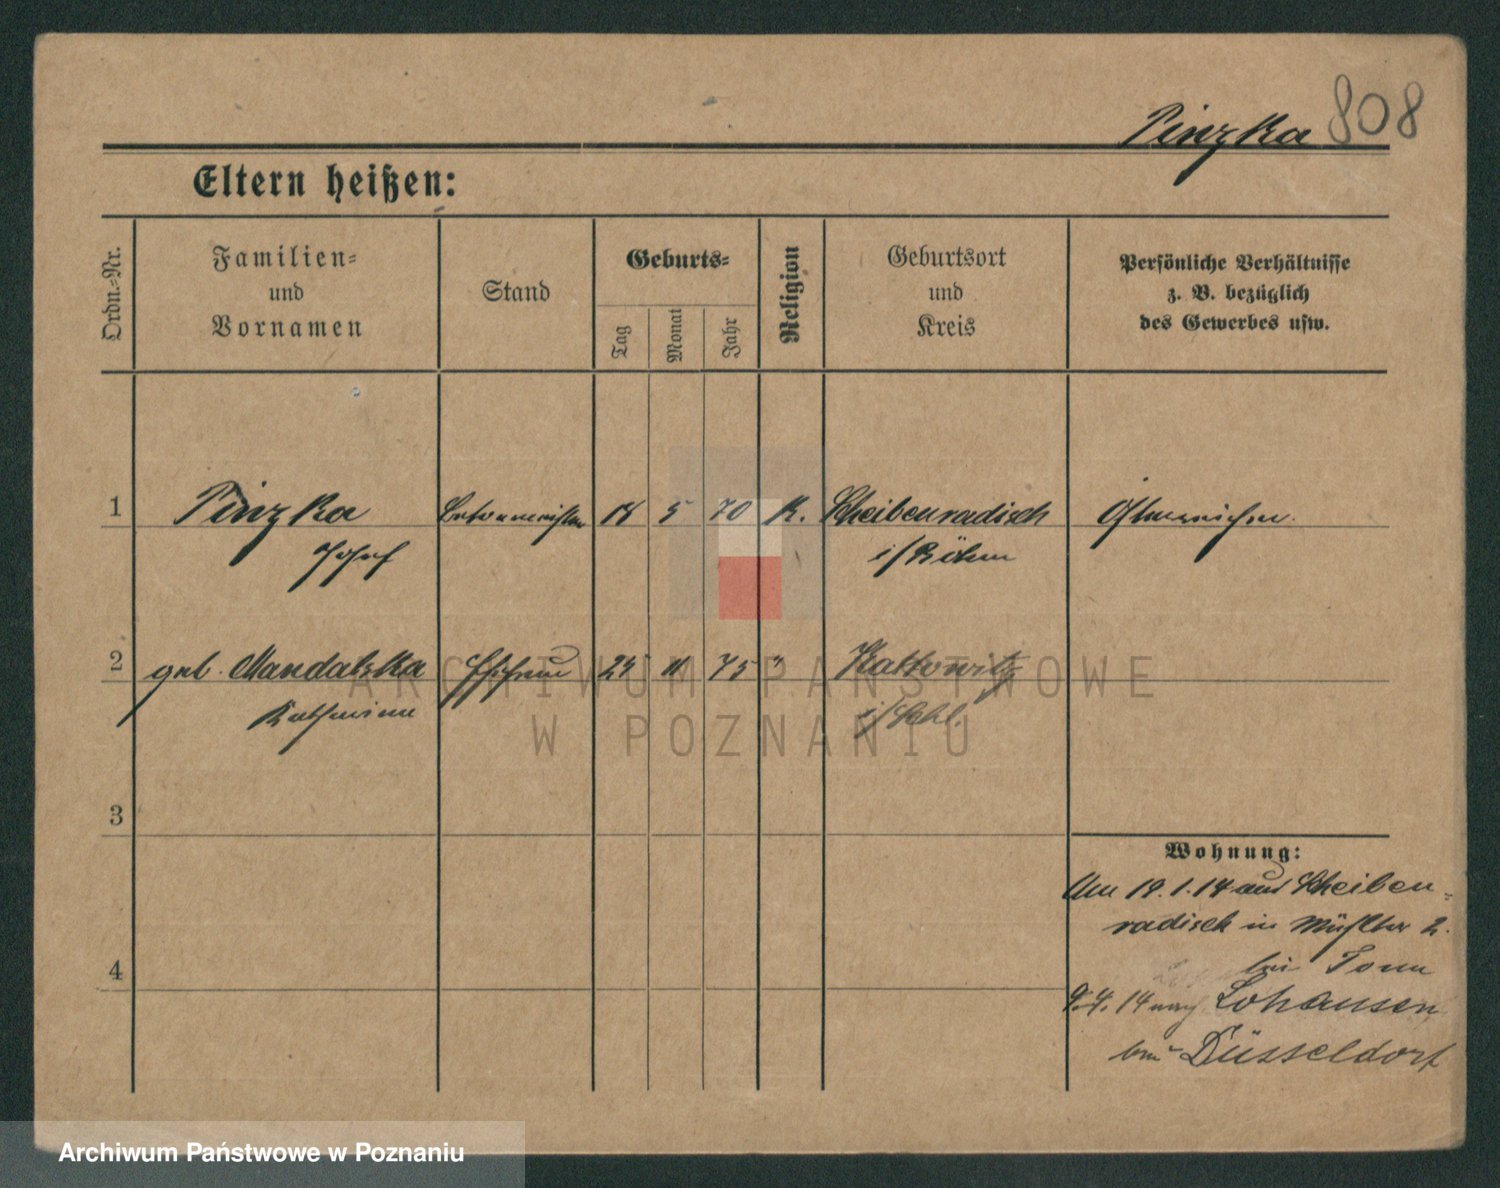 Pinzka 808
Eltern heißen:
Ordn.-Nr.
Familien- und Vornamen
Stand
Geburts-
Tag
Monat
Jahr
Religion
Geburtsort und Kreis
Persönliche Verhältnisse z. B. bezüglich des Gewerbes usw.
1 Pinzka 18 5 70 K. Scheibenradisch Österreicher.
Josef i/Böhm
2 geb. Mandalska Ehefrau 25 11 75 " Kattowitz
Katharina i/Schl.
3
Wohnung:
Am 19.1.14 aus Scheiben-
radisch in
bei Tonn
4
9.4.14 nach Lohausen
bei Düsseldorf
ARCHIWUM PAŃSTWOWE
W POZNANIU
Archiwum Państwowe w Poznaniu